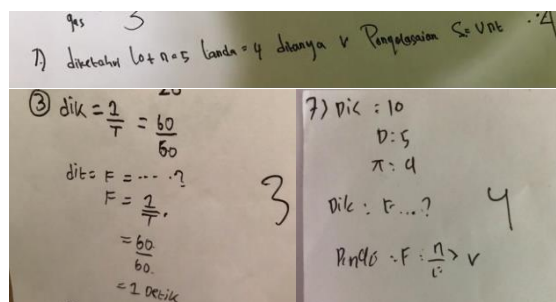 gas 3
7) diketahui Lo t n=5 landa=4 ditanya v Pengelasaian S= Vnt .4
③ dik = 1/T = 60/60
dit = F = .... ?
F = 1/T.
= 60/60.
= 1 Detik
3
7) Dik : 10
D: 5
π: 4
Dik : F...?
F : n/t > v
4